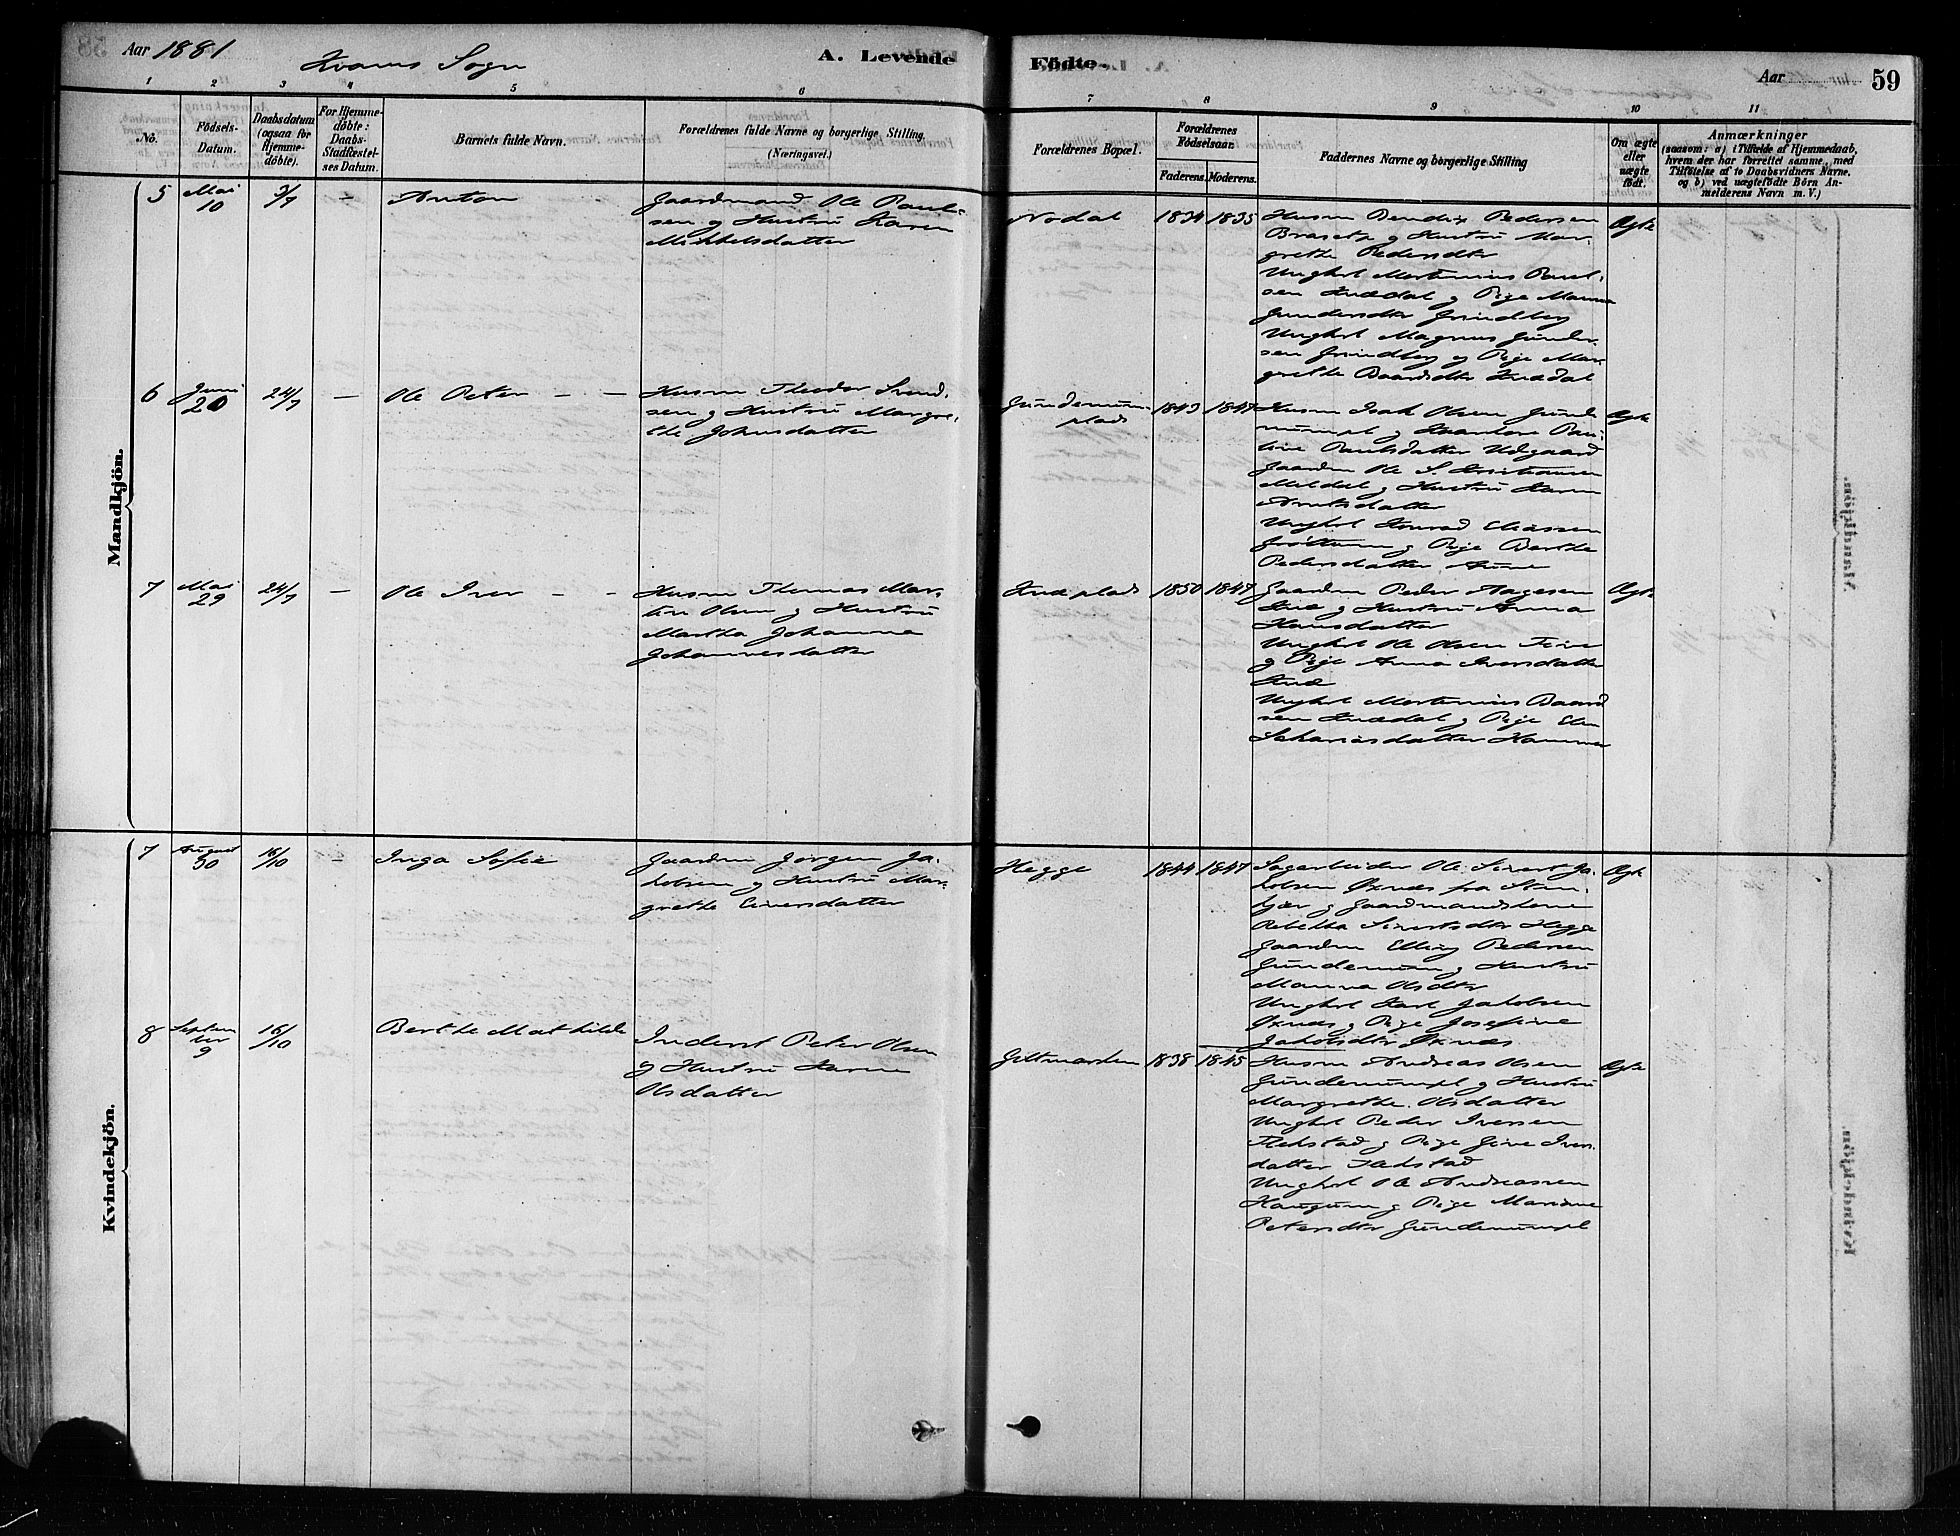 Aar 1881
Kvams Sogn
A. Levende
Födte.
Aar
59
1 2 3 4 5 6 7 8 9 10 11
No.
Födsels-
Datum.
Daabsdatum
(ogsaa for
Hjemme-
döbte).
For Hjemme-
döbte:
Daabs-
Stadfæstel-
ses Datum.
Barnets fulde Navn.
Forældrenes fulde Navne og borgerlige Stilling.
(Næringsvei.)
Forældrenes Bopæl.
Forældrenes
Födselsaar.
Faderens. Moderens.
Faddernes Navne og borgerlige Stilling
Om ægte
eller
uægte
födt.
Anmærkninger
(saasom: a) i Tilfælde af Hjemmedaab,
hvem der har forrettet samme, med
Tilföielse af to Daabsvidners Navne.
og b) ved uægtefödte Börn An-
melderens Navn m. V.)
Mandkjön.
5
Mai
10
3/7
Anton
Gaardmand Ole Paul-
sen og Hustru Karen
Mikkelsdatter
Nodal
1834 1835
Husm Bendix Pedersen
Braseta og Hustru Mar-
grethe Pedersdtr
Ungkrl Mortinius Paul-
sen Kvædal og Pige Manna
Gundersdtr Grindberg
Ungkrl Magnus Gunder-
sen Grindberg og Pige Mar-
grethe Baardsdtr Kvædal
Ægte
6
Juni
20
24/7
—
Ole Peter — —
Husm Theodor Svend-
sen og Hustru Margre-
the Johnsdatter
Gundemum
plads
1843 1847
Husm Isak Olsen Gunde-
mumpl og Pau-
line Paulsdatter Udgaard
Gaardm Ole S. Kristiansen
Meldal og Hustru Karen
Arntsdatter
Ungkrl Konrad Eliassen
Grøttum og Pige Berthe
Pedersdatter Aune
Ægte
7
Mai
29
24/7
—
Ole Iver — —
Husm Thomas Mar-
tin Olsen og Hustru
Martha Johanna
Johannesdatter
Kvæ plads
1850 1847
Gaardm Peder Aagesen
Kvæ og Hustru Anna
Hansdatter
Ungkrl Ole Olsen
og Pige Anna Iversdatter
Kvæ
Ungkrl Mortinius Baard
sen Kvædal og Pige Elen
Sakariasdatter Hammer
Ægte
Kvindekjön.
7
August
30
16/10
—
Inga Sofie
Gaardm Jörgen Ja-
kobsen og Hustru Mar-
grethe Eiversdatter
Hegge
1844 1847
Sagarbeider Ole Sivert Ja-
kobsen Øxnes fra Sten-
kjær og Gaardmandskone
Rebekka Sivertsdtr Hegge
Gaardm Elling Pedersen
Gundemum og Hustru
Manna Olsdtr
Ungkrl Karl Jakobsen
Øxnes og Pige Josefine
Jakobsdtr Øxnes
Ægte
8
Septem
ber
9
16/10
Berthe Mathilde
Inderst Peter Olsen
og Hustru Karen
Olsdatter
Giltmarken
1838 1845
Husm Andreas Olsen
Gundemumpl og Hustru
Margrethe Olsdatter
Ungkrl Peder Iversen
Flekstad og Pige Gine Ivers-
datter Flekstad
Ungkrl Ole Andreassen
Haugum og Pige Mariane
Petersdtr Gundemumpl
Ægte